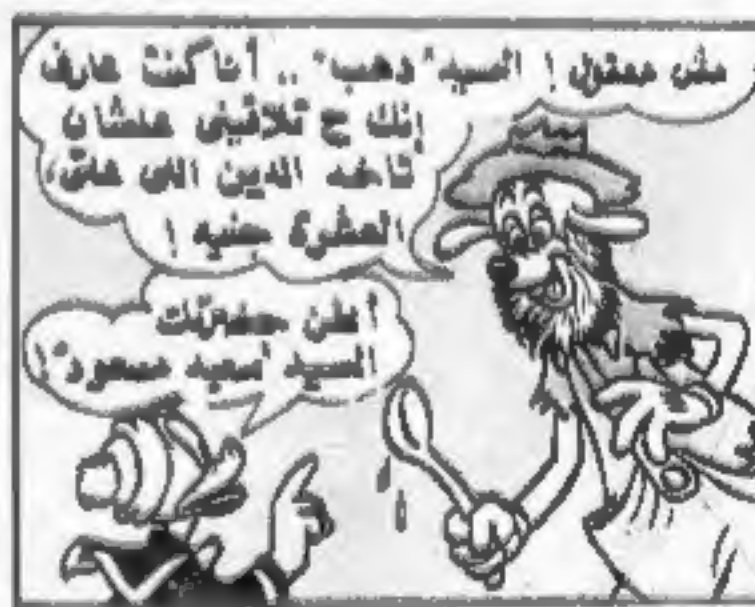 مش معقول ! السيد "دهب" .. أنا كنت عارف
إنك ح تلاقينى علشان
تاخد الدين اللى على،
العشرة جنيه !
أظن حضرتك
السيد "سعيد مسعود" !